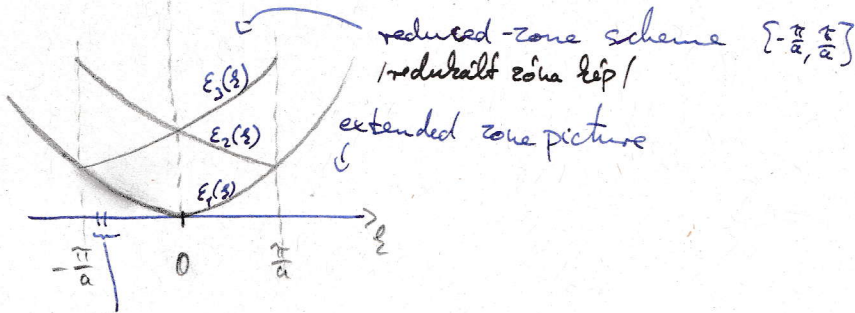 reduced-zone scheme {-π/a, π/a}
/redukált zóna kép/
extended zone picture
ε₃(k)
ε₂(k)
ε₁(k)
-π/a 0 π/a k